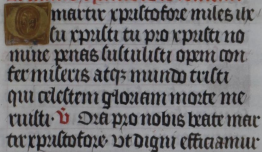 O martir xpristofore miles ihe
su xpristi tu pro xpristi no
mine penas sustulisti opem con
fer miseris atqz mundo tristi
qui celestem gloriam morte me
ruisti. V Ora pro nobis beate mar
tir xpristofore. vt digni efficiamur